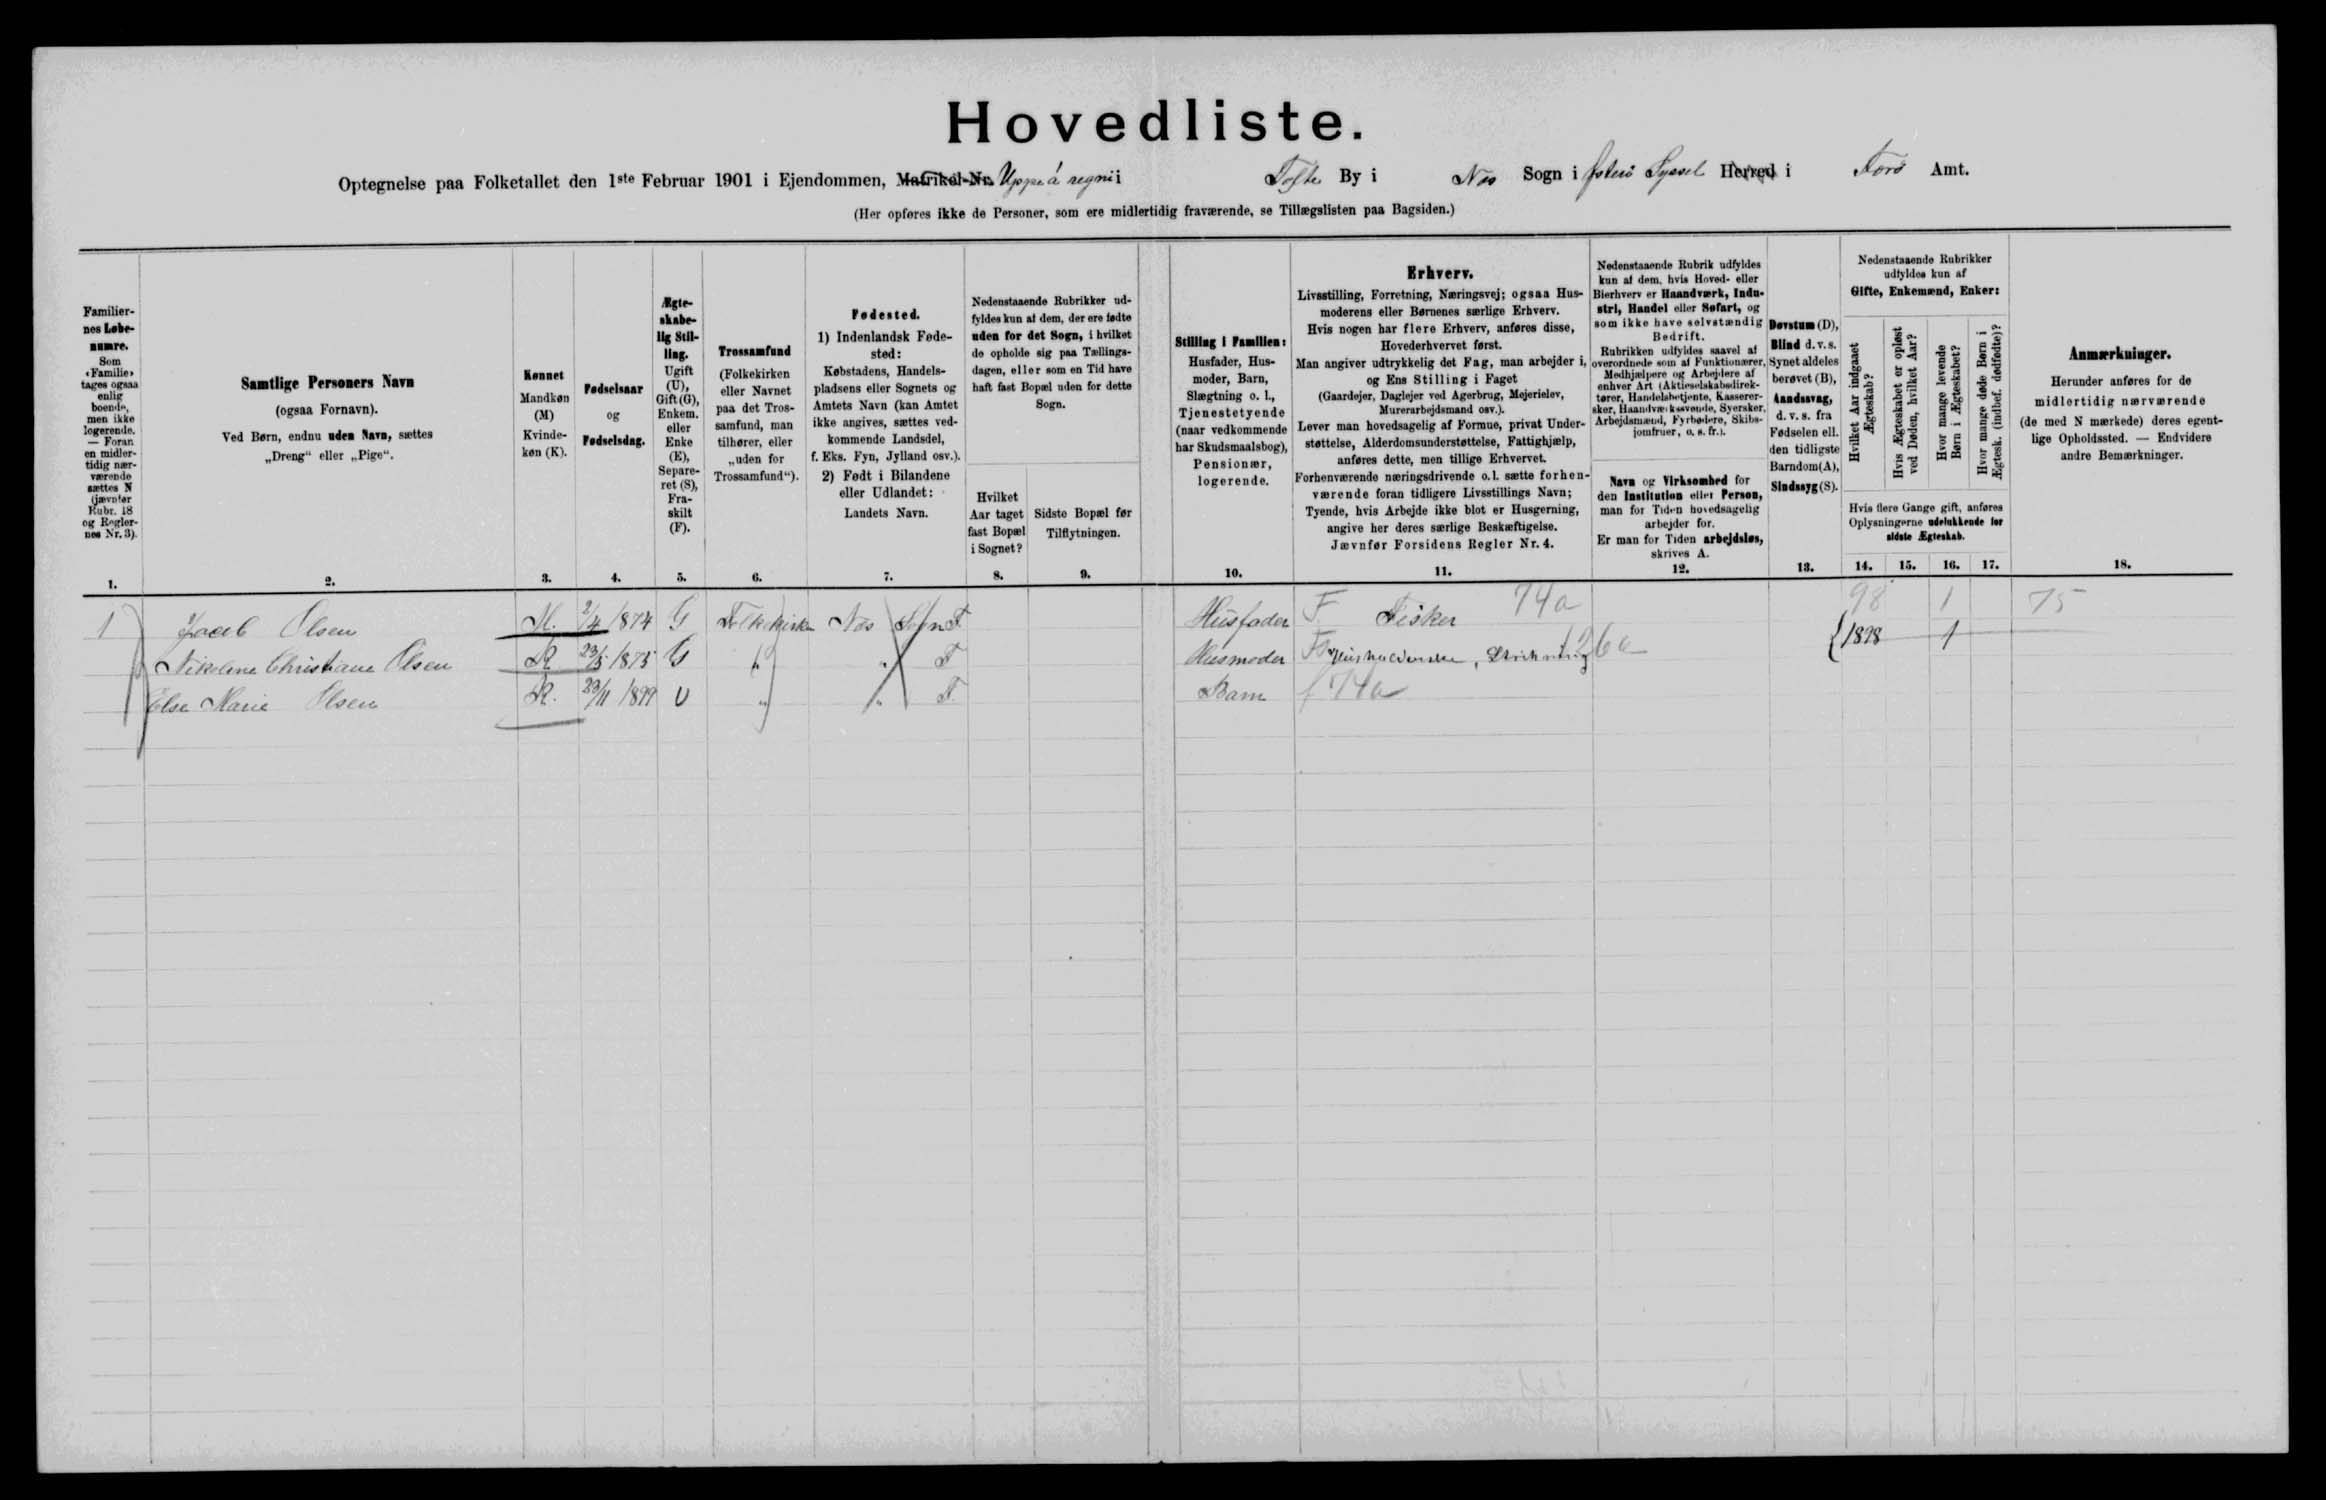 Hovedliste.
Optegnelse paa Folketallet den 1ste Februar 1901 i Ejendommen, Matrikel-Nr. Uppe á regni i Tofte By i Nes Sogn i Østerø Syssel Herred i Færø Amt.
(Her opføres ikke de Personer, som ere midlertidig fraværende, se Tillægslisten paa Bagsiden.)
Familiernes Løbenumre.
Som «Familie» tages ogsaa enlig boende, men ikke logerende. — Foran en midlertidig nærværende sættes N (jævnfør Rubr. 18 og Reglernes Nr. 3).
1.
Samtlige Personers Navn
(ogsaa Fornavn).
Ved Børn, endnu uden Navn, sættes
„Dreng“ eller „Pige“.
2.
Kønnet
Mandkøn (M)
Kvindekøn (K).
3.
Fødselsaar
og
Fødselsdag.
4.
Ægteskabelig Stilling.
Ugift (U), Gift (G), Enkem. eller Enke (E), Separeret (S), Fraskilt (F).
5.
Trossamfund
(Folkekirken eller Navnet paa det Trossamfund, man tilhører, eller „uden for Trossamfund“).
6.
Fødested.
1) Indenlandsk Fødested:
Købstadens, Handelspladsens eller Sognets og Amtets Navn (kan Amtet ikke angives, sættes vedkommende Landsdel, f. Eks. Fyn, Jylland osv.).
2) Født i Bilandene eller Udlandet:
Landets Navn.
7.
Nedenstaaende Rubrikker udfyldes kun af dem, der ere fødte uden for det Sogn, i hvilket de opholde sig paa Tællingsdagen, eller som en Tid have haft fast Bopæl uden for dette Sogn.
Hvilket Aar taget fast Bopæl i Sognet?
8.
Sidste Bopæl før Tilflytningen.
9.
Stilling i Familien:
Husfader, Husmoder, Barn, Slægtning o. l., Tjenestetyende (naar vedkommende har Skudsmaalsbog), Pensionær, logerende.
10.
Erhverv.
Livsstilling, Forretning, Næringsvej; ogsaa Husmoderens eller Børnenes særlige Erhverv.
Hvis nogen har flere Erhverv, anføres disse, Hovederhvervet først.
Man angiver udtrykkelig det Fag, man arbejder i, og Ens Stilling i Faget
(Gaardejer, Daglejer ved Agerbrug, Mejerielev, Murerarbejdsmand osv.).
Lever man hovedsagelig af Formue, privat Understøttelse, Alderdomsunderstøttelse, Fattighjælp, anføres dette, men tillige Erhvervet.
Forhenværende næringsdrivende o. l. sætte forhenværende foran tidligere Livsstillings Navn;
Tyende, hvis Arbejde ikke blot er Husgerning, angive her deres særlige Beskæftigelse.
Jævnfør Forsidens Regler Nr. 4.
11.
Nedenstaaende Rubrik udfyldes kun af dem, hvis Hoved- eller Bierhverv er Haandværk, Industri, Handel eller Søfart, og som ikke have selvstændig Bedrift.
Rubrikken udfyldes saavel af overordnede som af Funktionærer, Medhjælpere og Arbejdere af enhver Art (Aktieselskabsdirektører, Handelsbetjente, Kasserersker, Haandværkssvende, Syersker, Arbejdsmænd, Fyrbødere, Skibsjomfruer, o. s. fr.).
Navn og Virksomhed for den Institution eller Person, man for Tiden hovedsagelig arbejder for.
Er man for Tiden arbejdsløs, skrives A.
12.
Døvstum (D), Blind d. v. s. Synet aldeles berøvet (B), Aandssvag, d. v. s. fra Fødselen ell. den tidligste Barndom (A), Sindssyg (S).
13.
Nedenstaaende Rubrikker udfyldes kun af
Gifte, Enkemænd, Enker:
Hvilket Aar indgaaet Ægteskab?
Hvis Ægteskabet er opløst ved Døden, hvilket Aar?
Hvor mange levende Børn i Ægteskabet?
Hvor mange døde Børn i Ægtesk. (indbef. dødfødte)?
Hvis flere Gange gift, anføres Oplysningerne udelukkende for sidste Ægteskab.
14. 15. 16. 17.
Anmærkninger.
Herunder anføres for de midlertidig nærværende (de med N mærkede) deres egentlige Opholdssted. — Endvidere andre Bemærkninger.
18.
1 Jacob Olsen M. 2/4 1874 G Folkekirken Nes Sogn F Husfader F. Fisker 74a 98 1 75
Nikoline Christiane Olsen K 23/5 1875 G " " F Husmoder Husholderske, Strikning 26a 1898 1
Else Marie Olsen K. 23/11 1899 U " " F. Barn f 74a